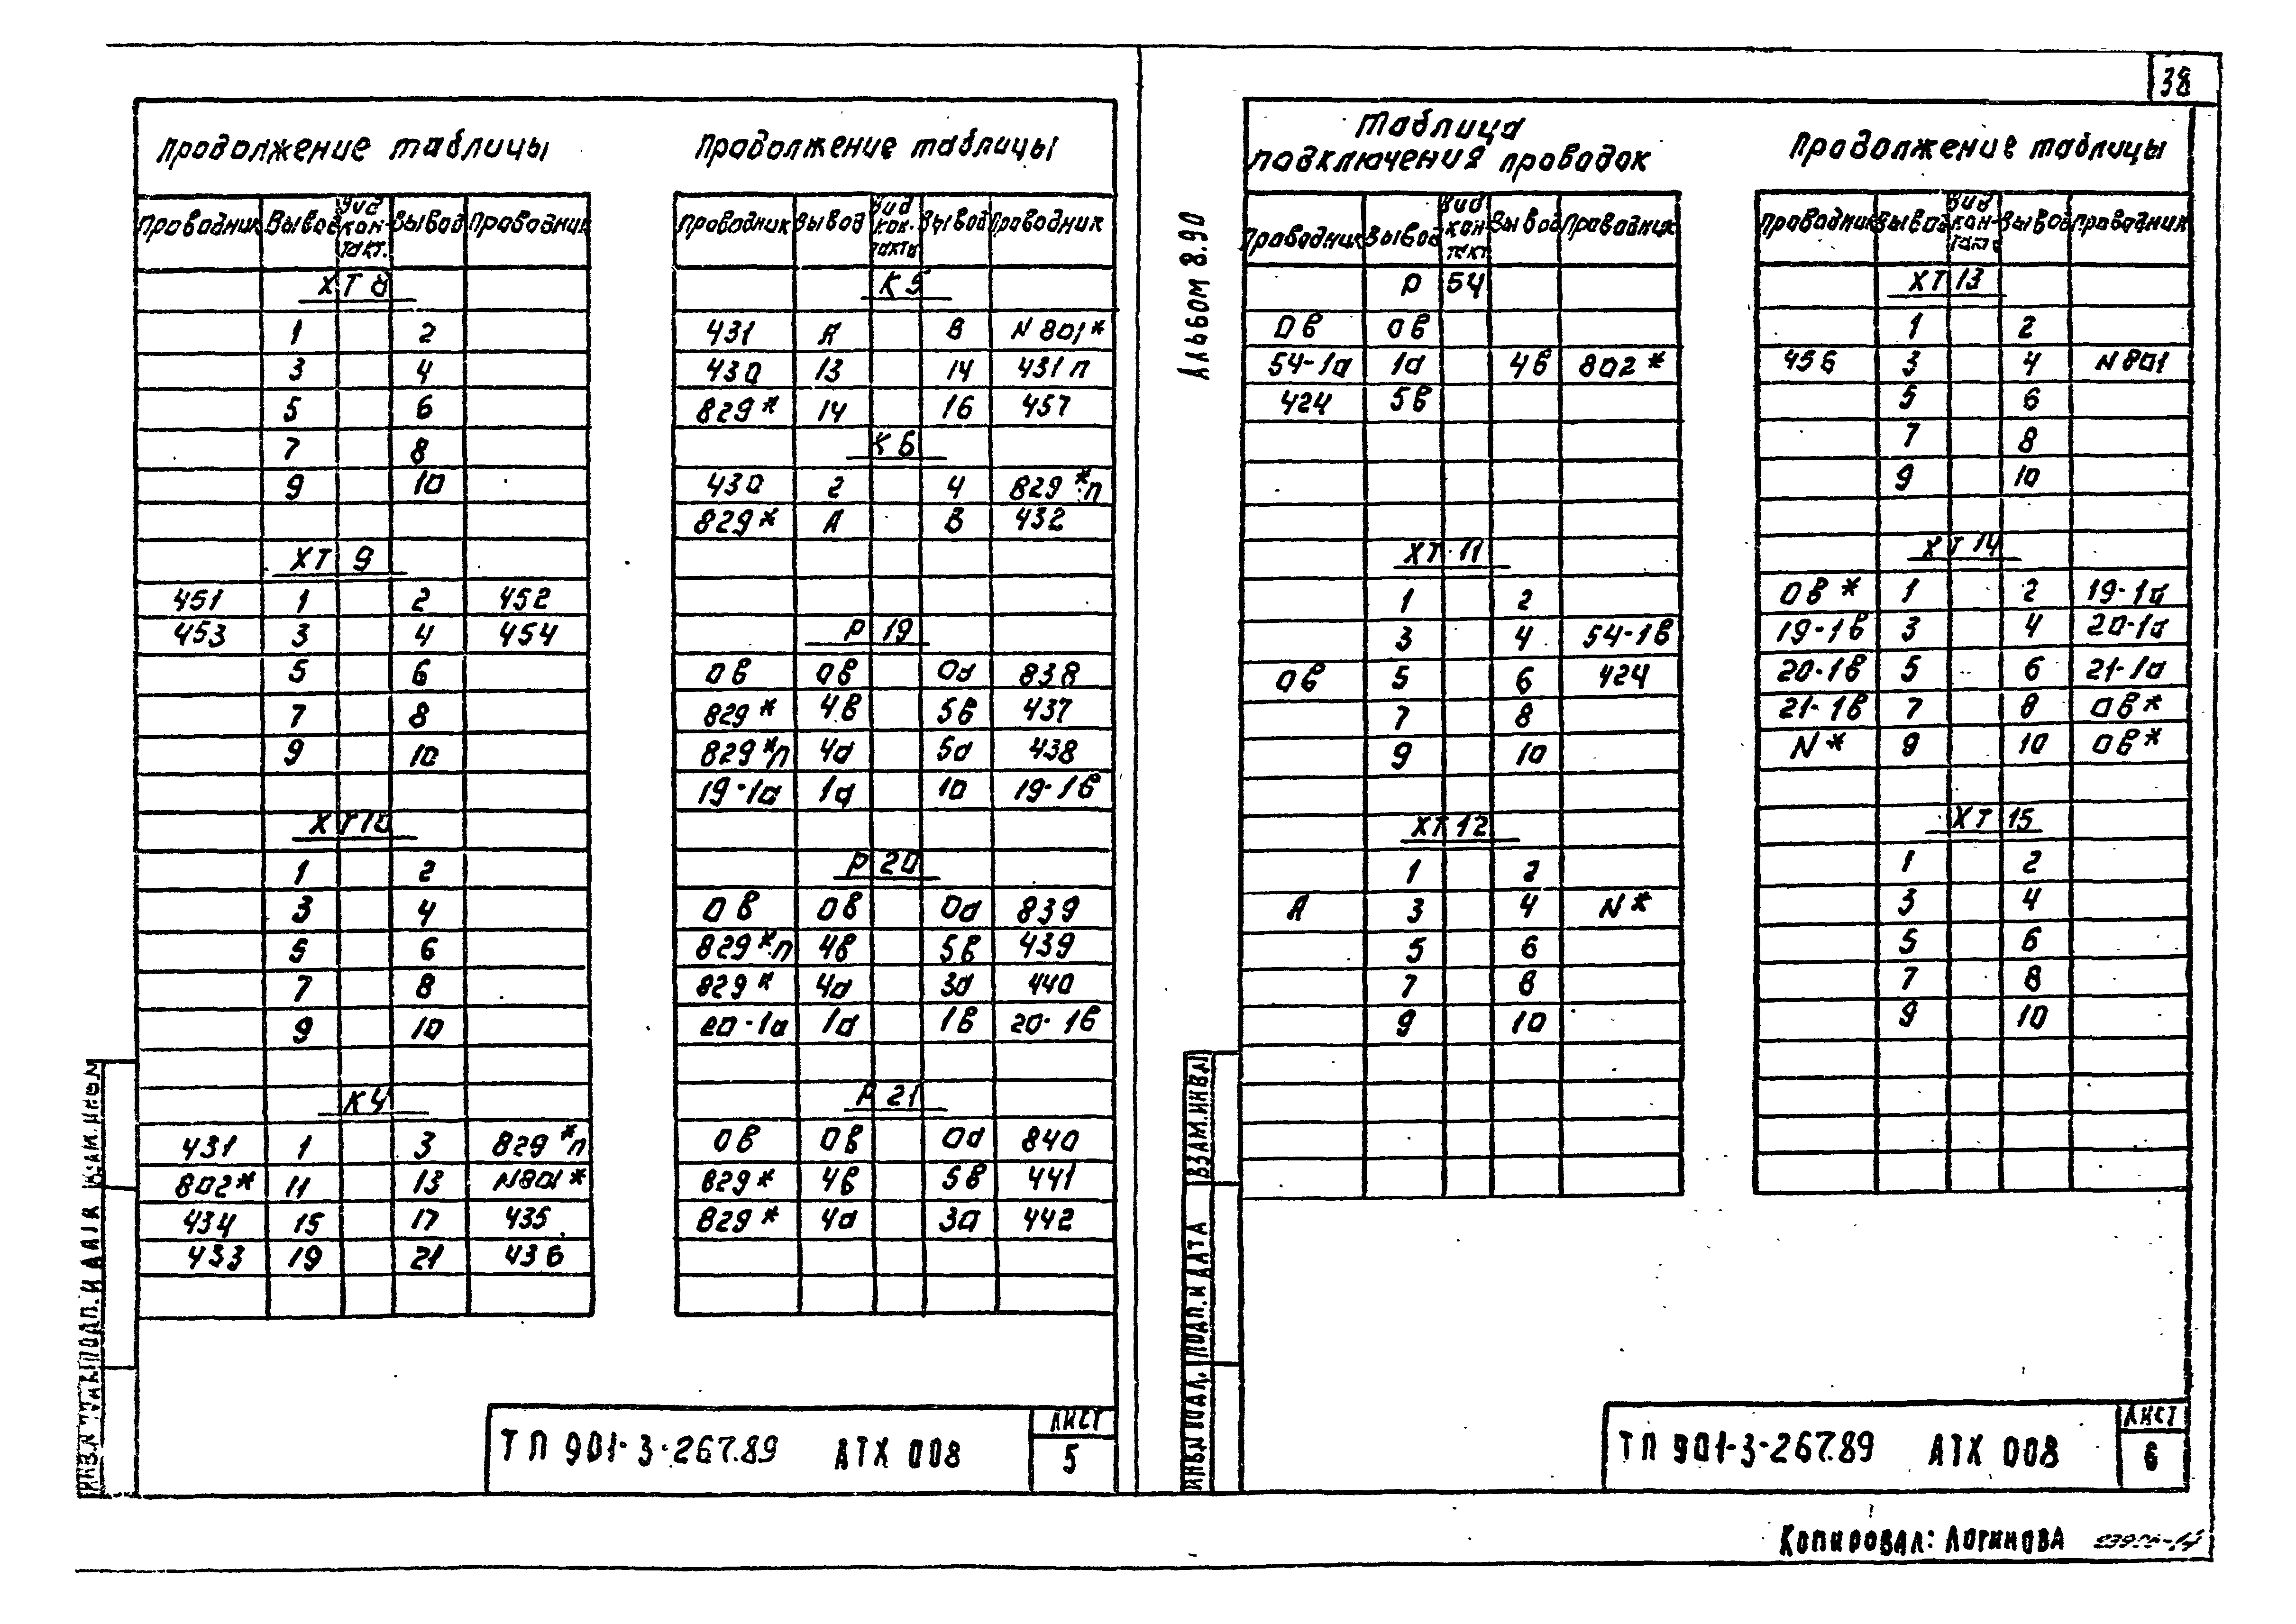 38
Продолжение таблицы
Проводник Вывод Вид контакт. Вывод Проводник
ХТ 8
1 2
3 4
5 6
7 8
9 10
ХТ 9
451 1 2 452
453 3 4 454
5 6
7 8
9 10
ХТ10
1 2
3 4
5 6
7 8
9 10
К4
431 1 3 829*п
802* 11 13 N801*
434 15 17 435
433 19 21 436
Продолжение таблицы
Проводник Вывод Вид контакта Вывод Проводник
К 5
431 А В N 801*
430 13 14 431 п
829* 14 16 457
К 6
430 2 4 829*п
829* А В 432
Р 19
0в 0в 0а 838
829* 4в 5в 437
829*п 4а 5а 438
19-1а 1а 10 19-1в
Р 20
0в 0в 0а 839
829*п 4в 5в 439
829* 4а 3а 440
20-1а 1а 1в 20-1в
Р 21
0в 0в 0а 840
829* 4в 5в 441
829* 4а 3а 442
ТП 901-3-267.89 АТХ 008
ЛИСТ
5
АЛЬБОМ 8.90
Таблица
подключения проводок
Проводник Вывод Вид контакт Вывод Проводник
Р 54
0в 0в
54-1а 1а 4в 802*
424 5в
ХТ 11
1 2
3 4 54-1в
0в 5 6 424
7 8
9 10
ХТ 12
1 2
А 3 4 N*
5 6
7 8
9 10
Продолжение таблицы
Проводник Вывод Вид контакта Вывод Проводник
ХТ 13
1 2
456 3 4 N 801
5 6
7 8
9 10
ХТ 14
0в* 1 2 19-1а
19-1в 3 4 20-1а
20-1в 5 6 21-1а
21-1в 7 8 0в*
N* 9 10 0в*
ХТ 15
1 2
3 4
5 6
7 8
9 10
ИНВ.N ПОДЛ. ПОДП. И ДАТА ВЗАМ.ИНВ.N
ТП 901-3-267.89 АТХ 008
ЛИСТ
6
КОПИРОВАЛ: ЛОГИНОВА